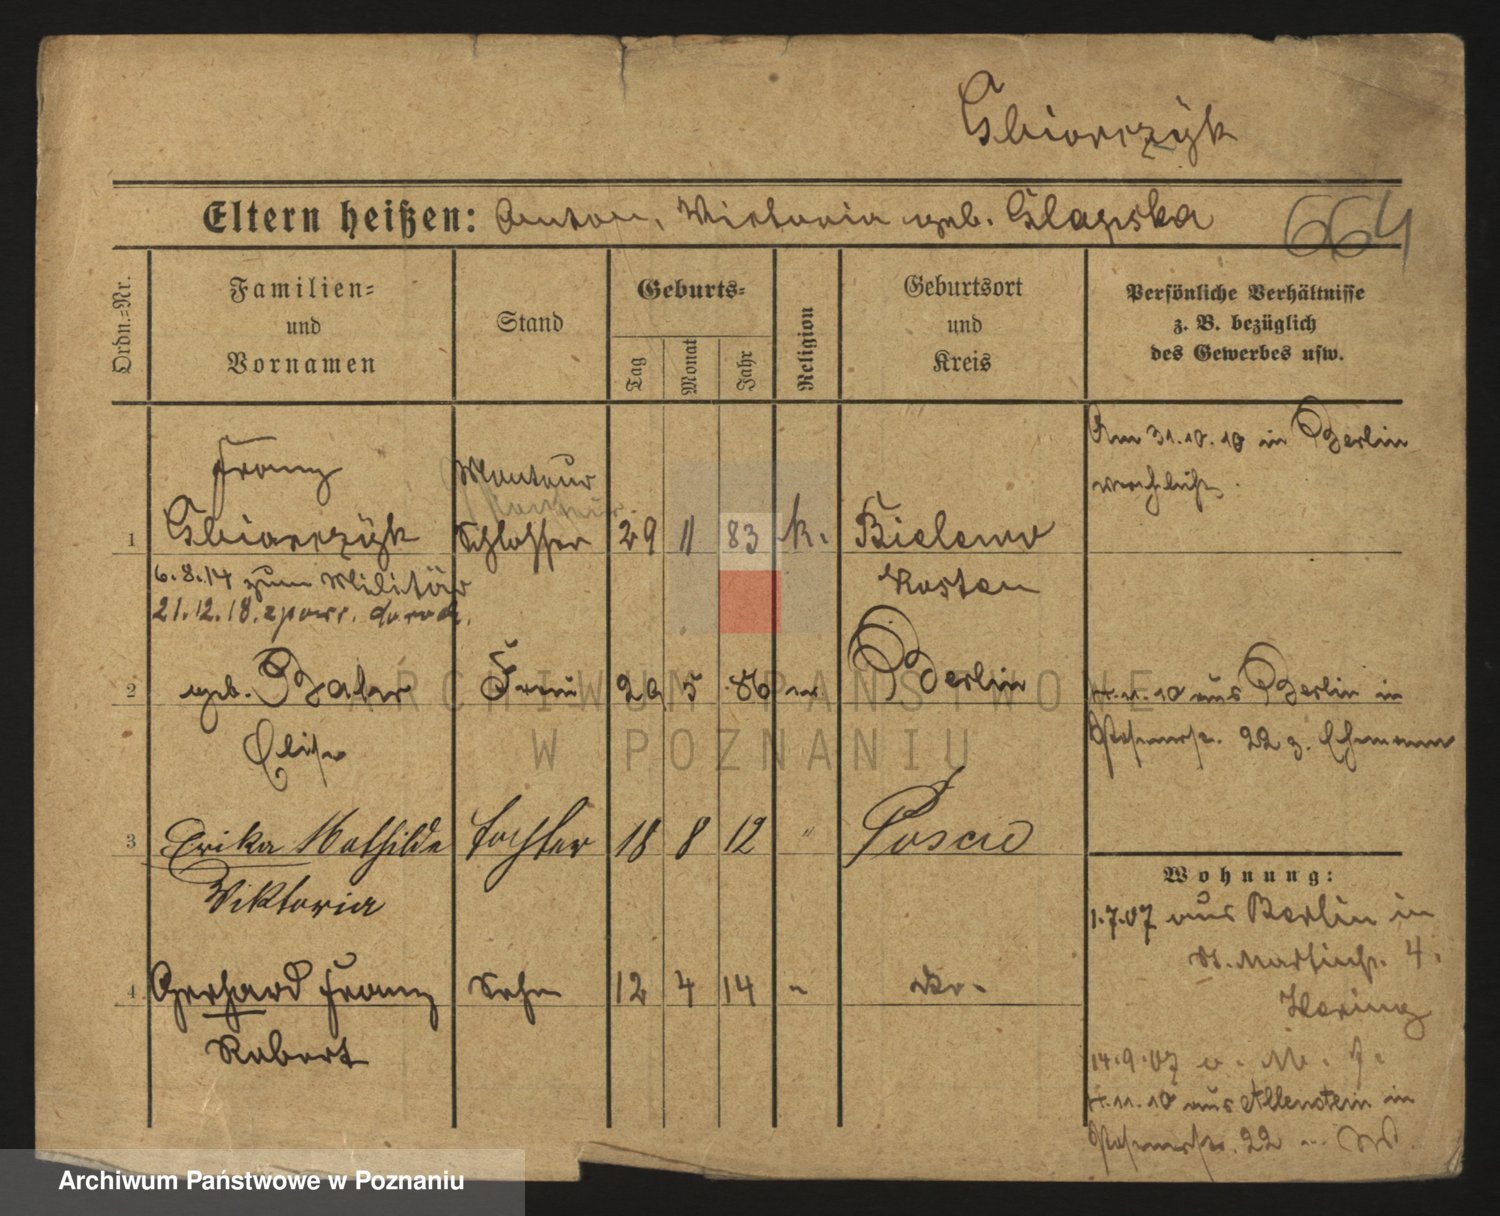 Gbiorczÿk
Eltern heißen: Anton, Victoria geb. Glapska
664
Ordn.=Nr.
Familien=
und
Vornamen
Stand
Geburts=
Tag
Monat
Jahr
Religion
Geburtsort
und
Kreis
Persönliche Verhältnisse
z. B. bezüglich
des Gewerbes usw.
Am 31.10.10 in Berlin
Franz
Monteur
1 Gbiorczÿk Schlosser 29 11 83 k. Bielewo
6.8.14 zum Militär Kosten
21.12.18. z powr. do rodz.
2 geb. Frau 5 86 Berlin 4.11.10 aus Berlin in
Elise 22 z. Ehemann
3 Erika Mathilde Tochter 18 8 12 " Posen
Viktoria
Wohnung:
1.7.07 aus Berlin in
St. Martinstr. 4.
Hering
4 Gerhard Franz Sohn 12 4 14 "
Robert
14.9.07
4.11.10 aus Allenstein in
22
ARCHIWUM PAŃSTWOWE
W POZNANIU
Archiwum Państwowe w Poznaniu